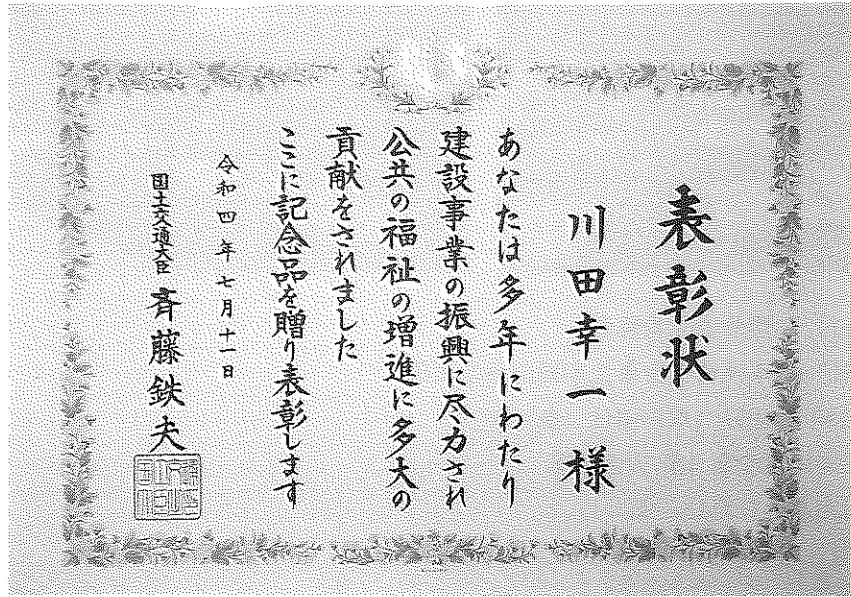 表彰状
川田幸一 様
あなたは多年にわたり
建設事業の振興に尽力され
公共の福祉の増進に多大の
貢献をされました
ここに記念品を贈り表彰します
令和四年七月十一日
国土交通大臣 斉藤鉄夫